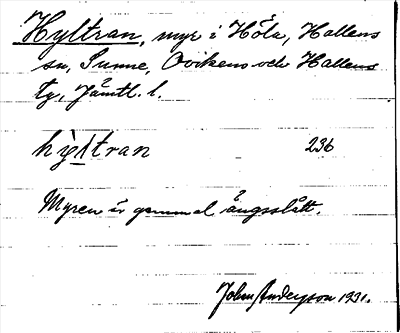 Hyltran, myr i Höla, Hallens
sn, Sunne, Ovikens och Hallens
tg, Jämtl. l.
hy̆ltran 236
Myren är gammal ängsslått.
John Andersson 1931.